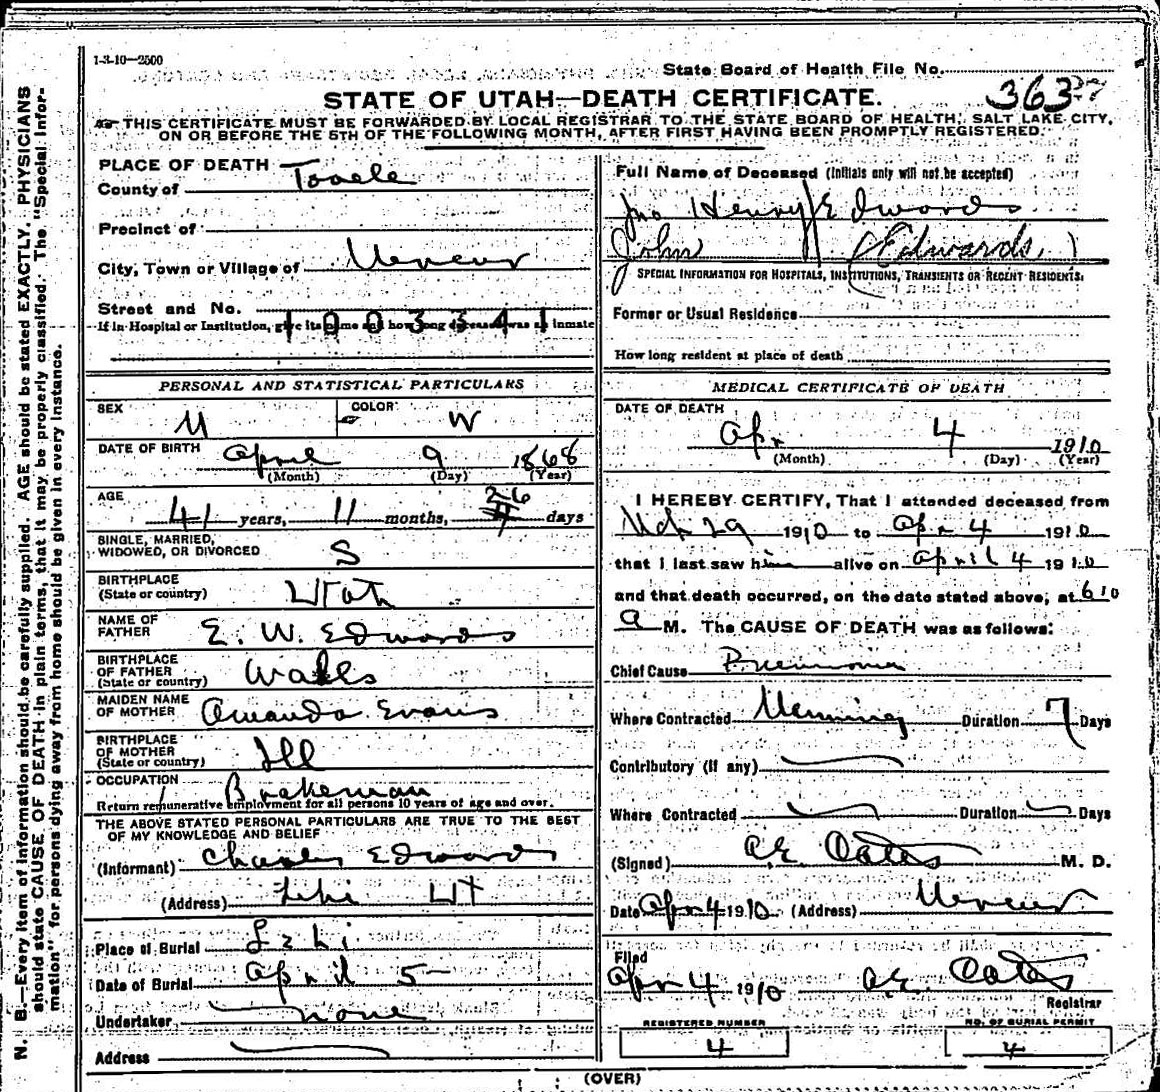 1-3-10—2500
State Board of Health File No. 363
STATE OF UTAH—DEATH CERTIFICATE.
THIS CERTIFICATE MUST BE FORWARDED BY LOCAL REGISTRAR TO THE STATE BOARD OF HEALTH, SALT LAKE CITY,
ON OR BEFORE THE 5TH OF THE FOLLOWING MONTH, AFTER FIRST HAVING BEEN PROMPTLY REGISTERED.
N. B.—Every item of information should be carefully supplied. AGE should be stated EXACTLY. PHYSICIANS
should state CAUSE OF DEATH in plain terms, that it may be properly classified. The "Special Infor-
mation" for persons dying away from home should be given in every instance.
PLACE OF DEATH
County of Tooele
Precinct of
City, Town or Village of Mercur
Street and No.
1003341
If in Hospital or Institution, give its name and how long deceased was an inmate
PERSONAL AND STATISTICAL PARTICULARS
SEX M COLOR W
DATE OF BIRTH April 9 1868
(Month) (Day) (Year)
AGE 41 years, 11 months, 26 days
SINGLE, MARRIED,
WIDOWED, OR DIVORCED S
BIRTHPLACE
(State or country) Utah
NAME OF
FATHER E. W. Edwards
BIRTHPLACE
OF FATHER
(State or country) Wales
MAIDEN NAME
OF MOTHER Amanda Evans
BIRTHPLACE
OF MOTHER
(State or country) Ill
OCCUPATION Brakeman
Return remunerative employment for all persons 10 years of age and over.
THE ABOVE STATED PERSONAL PARTICULARS ARE TRUE TO THE BEST
OF MY KNOWLEDGE AND BELIEF
(Informant) Charles Edwards
(Address) Lehi UT
Place of Burial Lehi
Date of Burial April 5
Undertaker none
Address
Full Name of Deceased (Initials only will not be accepted)
Jno Henry Edwards
John (Edwards)
SPECIAL INFORMATION FOR HOSPITALS, INSTITUTIONS, TRANSIENTS OR RECENT RESIDENTS:
Former or Usual Residence
How long resident at place of death
MEDICAL CERTIFICATE OF DEATH
DATE OF DEATH
Apr 4 1910
(Month) (Day) (Year)
I HEREBY CERTIFY, That I attended deceased from
Mch 29 1910 to Apr 4 1910
that I last saw him alive on April 4 1910
and that death occurred, on the date stated above, at 610
a M. The CAUSE OF DEATH was as follows:
Chief Cause Pneumonia
Where Contracted Duration 7 Days
Contributory (if any)
Where Contracted Duration Days
(Signed) A.E. Oates M. D.
Date Apr 4 1910 (Address) Mercur
Filed
Apr 4 1910 A.E. Oates
Registrar
REGISTERED NUMBER
4
NO. OF BURIAL PERMIT
4
(OVER)